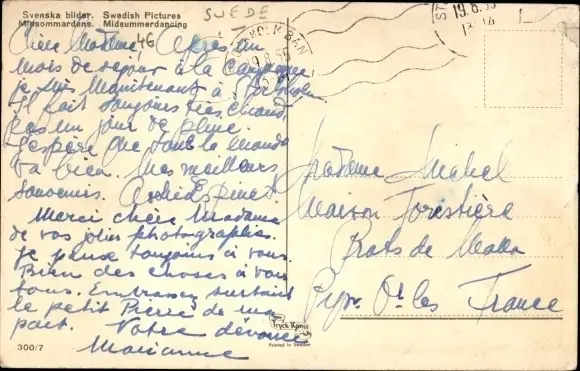 Svenska bilder. Swedish Pictures
Midsommardans. Midsummerdancing
SUEDE
46
Chère Madame, Après un
mois de séjour à la campagne
je suis maintenant à Stockholm
Il fait toujours très chaud,
pas un jour de pluie.
J'espère que tout le monde
va bien. Mes meilleurs
souvenirs.
Merci chère Madame
de vos jolies photographies.
Je pense toujours à vous.
Bien des choses à vous
tous. Embrassez surtout
le petit Pierre de ma
part. Votre dévouée
Marianne
300/7
Printed in Sweden
STOCKHOLM BAN
19.8.55
Madame Michel
Maison Forestière
Prats de Mollo
Pyr. Or. les France